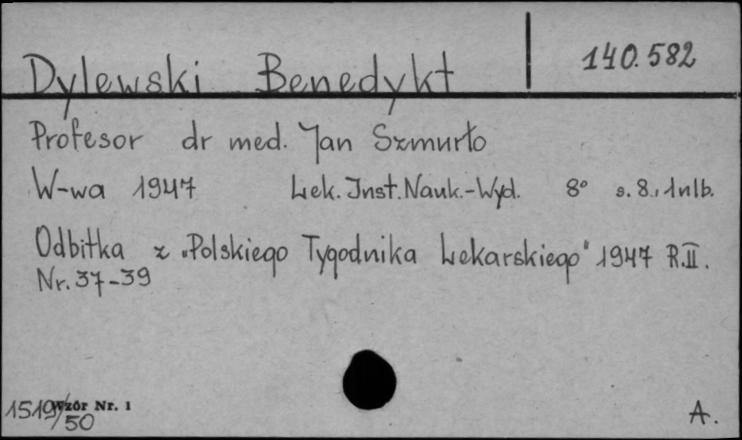 Dylewski Benedykt 140.582
Profesor dr med. Jan Szmurło
W-wa 1947 Lek. Inst. Nauk.-Wyd. 8° s. 8, 1nlb.
Odbitka z „Polskiego Tygodnika Lekarskiego" 1947 R.II.
Nr. 37-39
1519/50 Wzór Nr. 1
A.